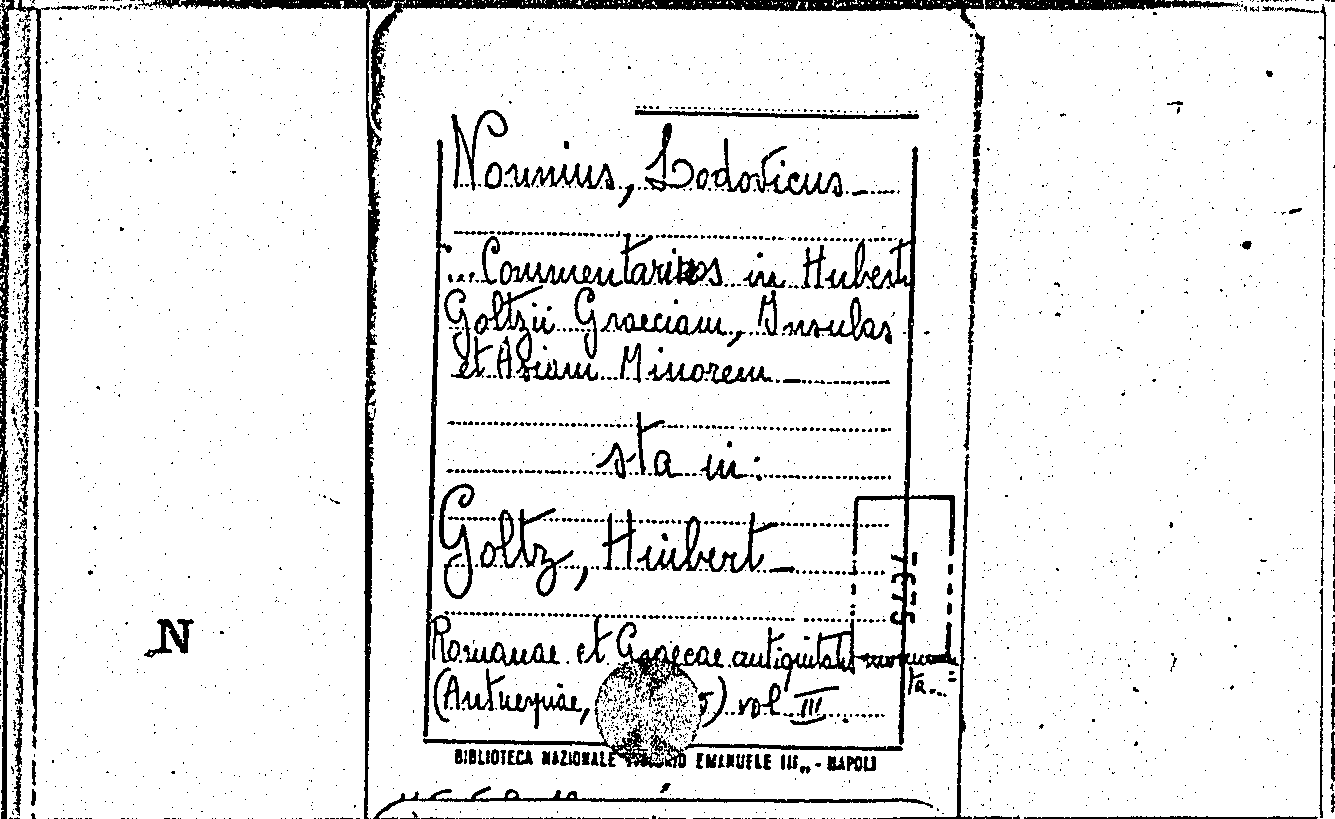 Nonnius, Lodovicus
...Commentarios in Huberti
Goltzii Graeciam, Insulas
et Asiam Minorem
sta in:
Goltz, Hiubert
Romanae et Graecae antiquitatis
(Antuerpiae, 5) vol III.
BIBLIOTECA NAZIONALE EMANUELE III„ - NAPOLI
N